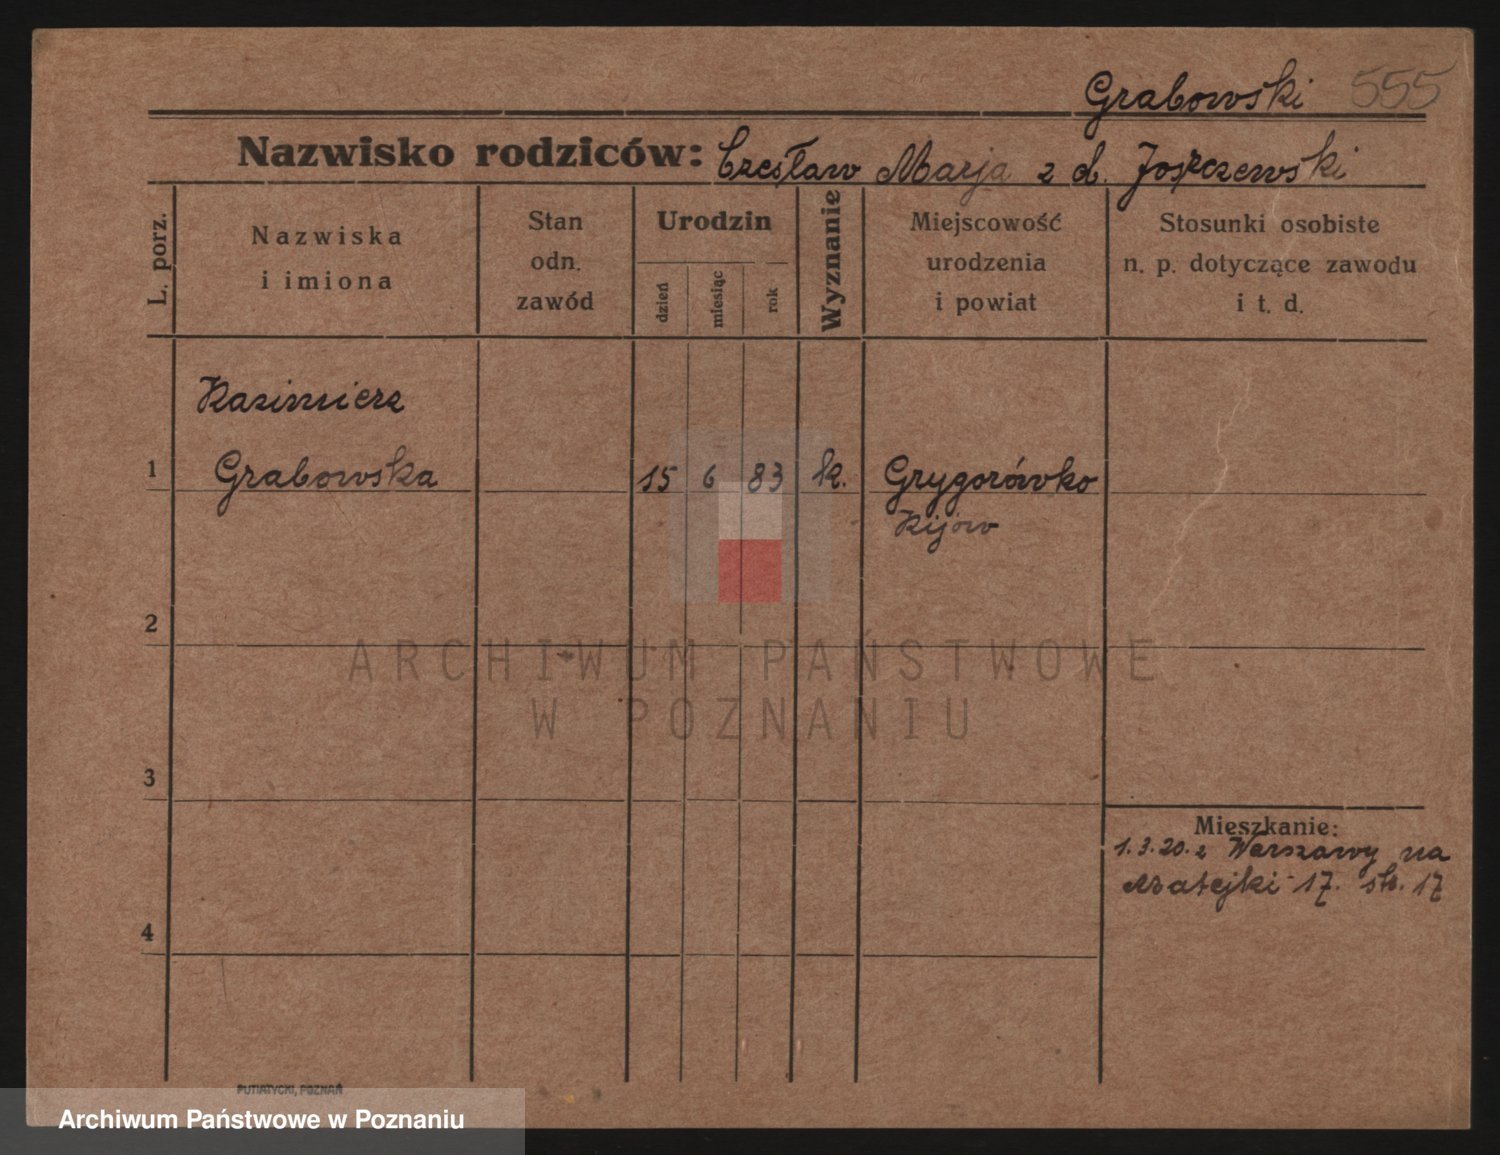 Grabowski 555
Nazwisko rodziców: Czesław Marja z d. Joszczewski
L. porz.
Nazwiska
i imiona
Stan
odn.
zawód
Urodzin
dzień
miesiąc
rok
Wyznanie
Miejscowość
urodzenia
i powiat
Stosunki osobiste
n. p. dotyczące zawodu
i t. d.
Kazimierz
1 Grabowska 15 6 83 k. Grygorówko
Kijów
2
ARCHIWUM PAŃSTWOWE
W POZNANIU
3
Mieszkanie:
1.3.20. z Warszawy na
Matejki 17. str. 17
4
PUTIATYCKI, POZNAŃ
Archiwum Państwowe w Poznaniu